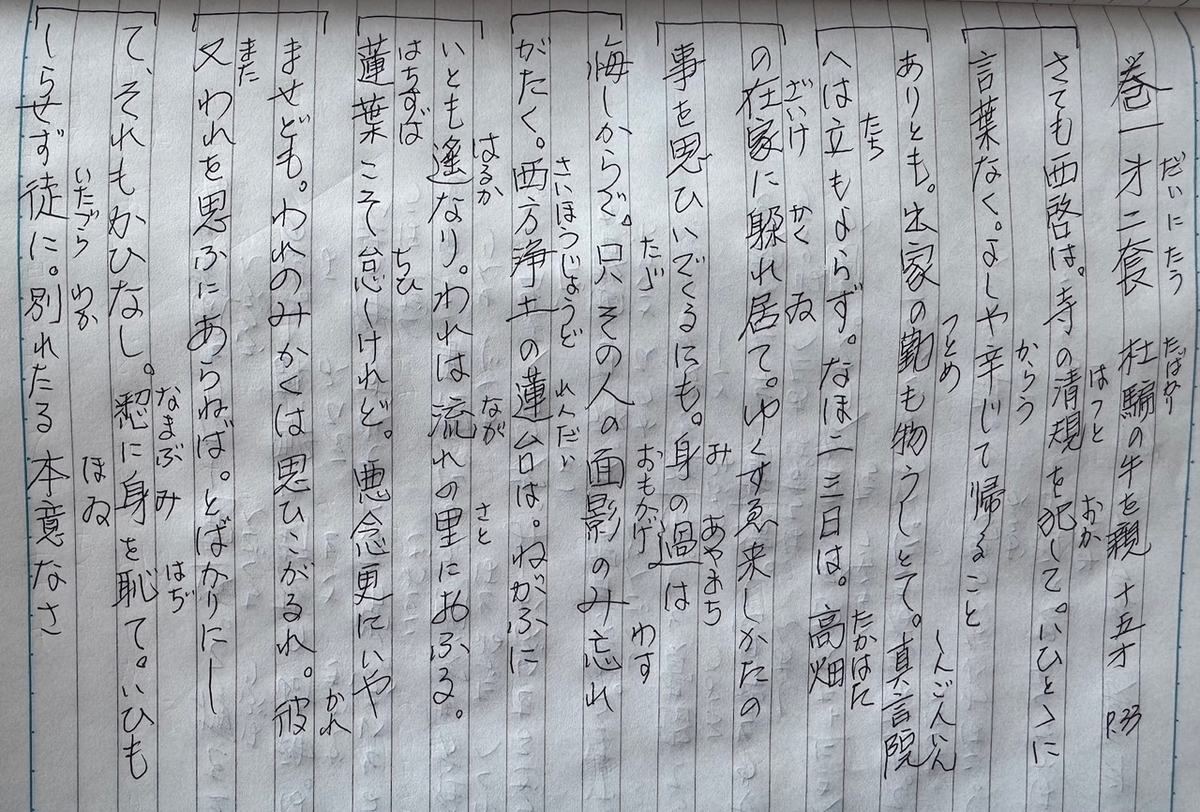 巻一 才二套 杜騙の牛を親 十五才 P.33
だいにたう たばかり
さても西啓は。寺の清規を犯して。いひとゝに
はつと おか
言葉なく。よしや辛じて帰ること
からう
ありとも。出家の勤も物うしとて。真言院
つとめ しんごんいん
へは立もよらず。なほ二三日は。高畑
たち たかはた
の在家に躱れ居て。ゆくすゑ来しかたの
ざいけ かく ゐ
事を思ひいでくるにも。身の過は
み あやまち
悔しからで。只その人の面影のみ忘れ
たゞ おもかげ わす
がたく。西方浄土の蓮台は。ねがふに
さいほうじょうど れんだい
いとも遙なり。われは流れの里におふる。
はるか なが さと
蓮葉こそ怠しけれど。悪念更にいや
はちずば ちひ
ませども。われのみかくは思ひこがるれ。彼
かれ
又われを思ふにあらねば。とばかりにし
また
て、それもかひなし。憖に身を恥て。いひも
なまぶ み はぢ
しらせず徒に。別れたる本意なさ
いたづら わか ほゐ